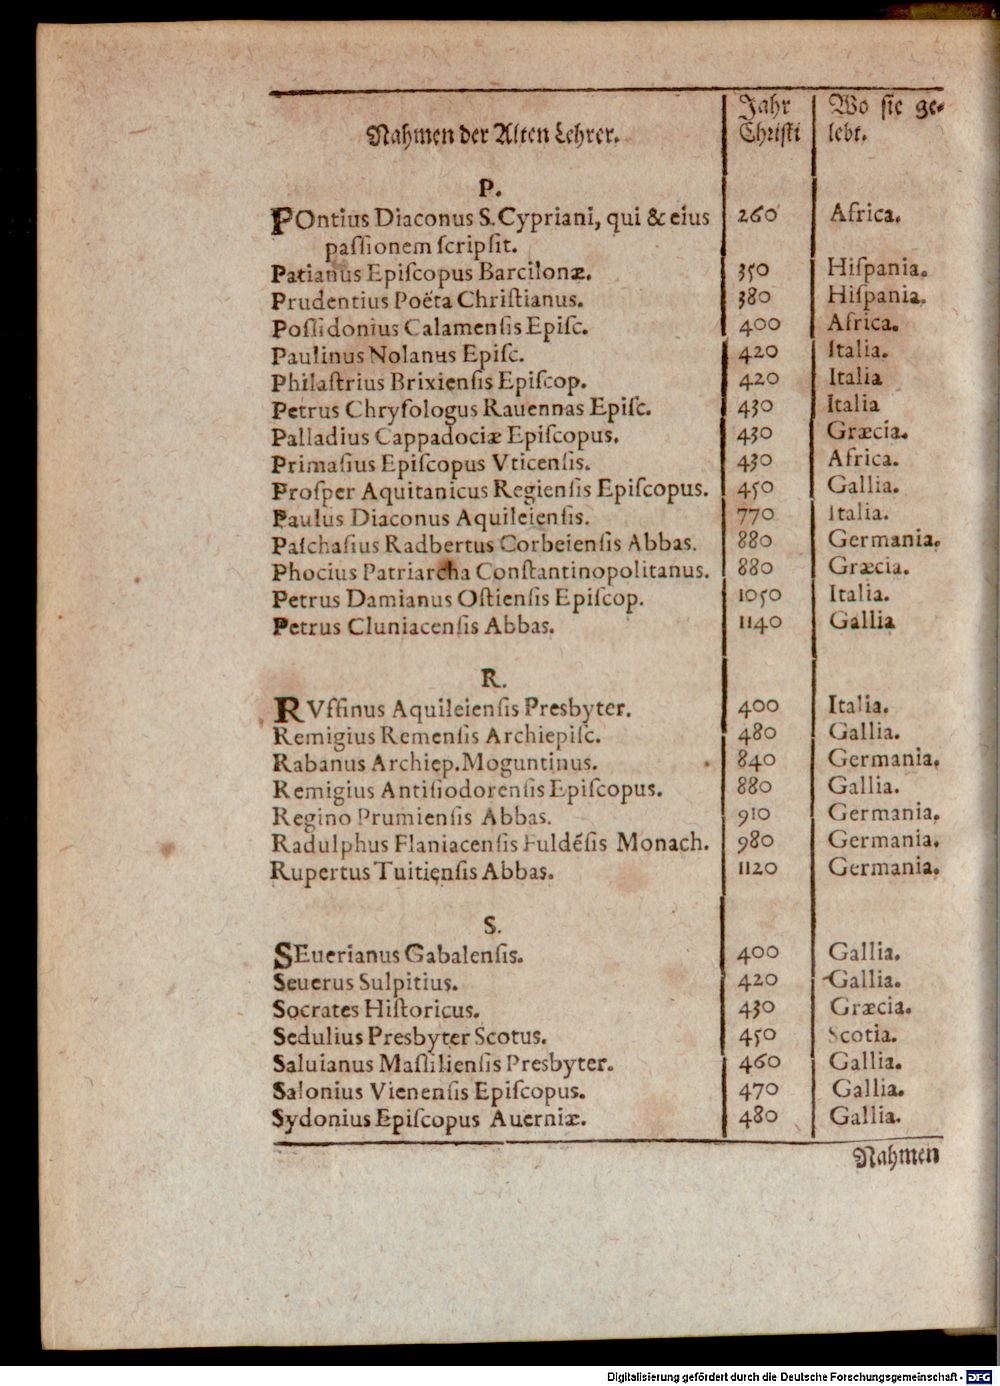 Nahmen der Alten Lehrer. Jahr Christi Wo sie ge-
lebt.
P.
POntius Diaconus S. Cypriani, qui & eius 260 Africa.
paſſionem ſcripſit.
Patianus Epiſcopus Barcilonæ. 350 Hiſpania.
Prudentius Poëta Chriſtianus. 380 Hiſpania.
Poſſidonius Calamenſis Epiſc. 400 Africa.
Paulinus Nolanus Epiſc. 420 Italia.
Philaſtrius Brixienſis Epiſcop. 420 Italia
Petrus Chryſologus Rauennas Epiſc. 430 Italia
Palladius Cappadociæ Epiſcopus. 430 Græcia.
Primaſius Epiſcopus Vticenſis. 430 Africa.
Proſper Aquitanicus Regienſis Epiſcopus. 450 Gallia.
Paulus Diaconus Aquileienſis. 770 Italia.
Paſchaſius Radbertus Corbeienſis Abbas. 880 Germania.
Phocius Patriarcha Conſtantinopolitanus. 880 Græcia.
Petrus Damianus Oſtienſis Epiſcop. 1050 Italia.
Petrus Cluniacenſis Abbas. 1140 Gallia
R.
RVffinus Aquileienſis Presbyter. 400 Italia.
Remigius Remenſis Archiepiſc. 480 Gallia.
Rabanus Archiep. Moguntinus. 840 Germania.
Remigius Antiſiodorenſis Epiſcopus. 880 Gallia.
Regino Prumienſis Abbas. 910 Germania.
Radulphus Flaniacenſis Fuldẽſis Monach. 980 Germania.
Rupertus Tuitienſis Abbas. 1120 Germania.
S.
SEuerianus Gabalenſis. 400 Gallia.
Seuerus Sulpitius. 420 Gallia.
Socrates Hiſtoricus. 430 Græcia.
Sedulius Presbyter Scotus. 450 Scotia.
Saluianus Maſſilienſis Presbyter. 460 Gallia.
Salonius Vienenſis Epiſcopus. 470 Gallia.
Sydonius Epiſcopus Auerniæ. 480 Gallia.
Nahmen
Digitalisierung gefördert durch die Deutsche Forschungsgemeinschaft - DFG